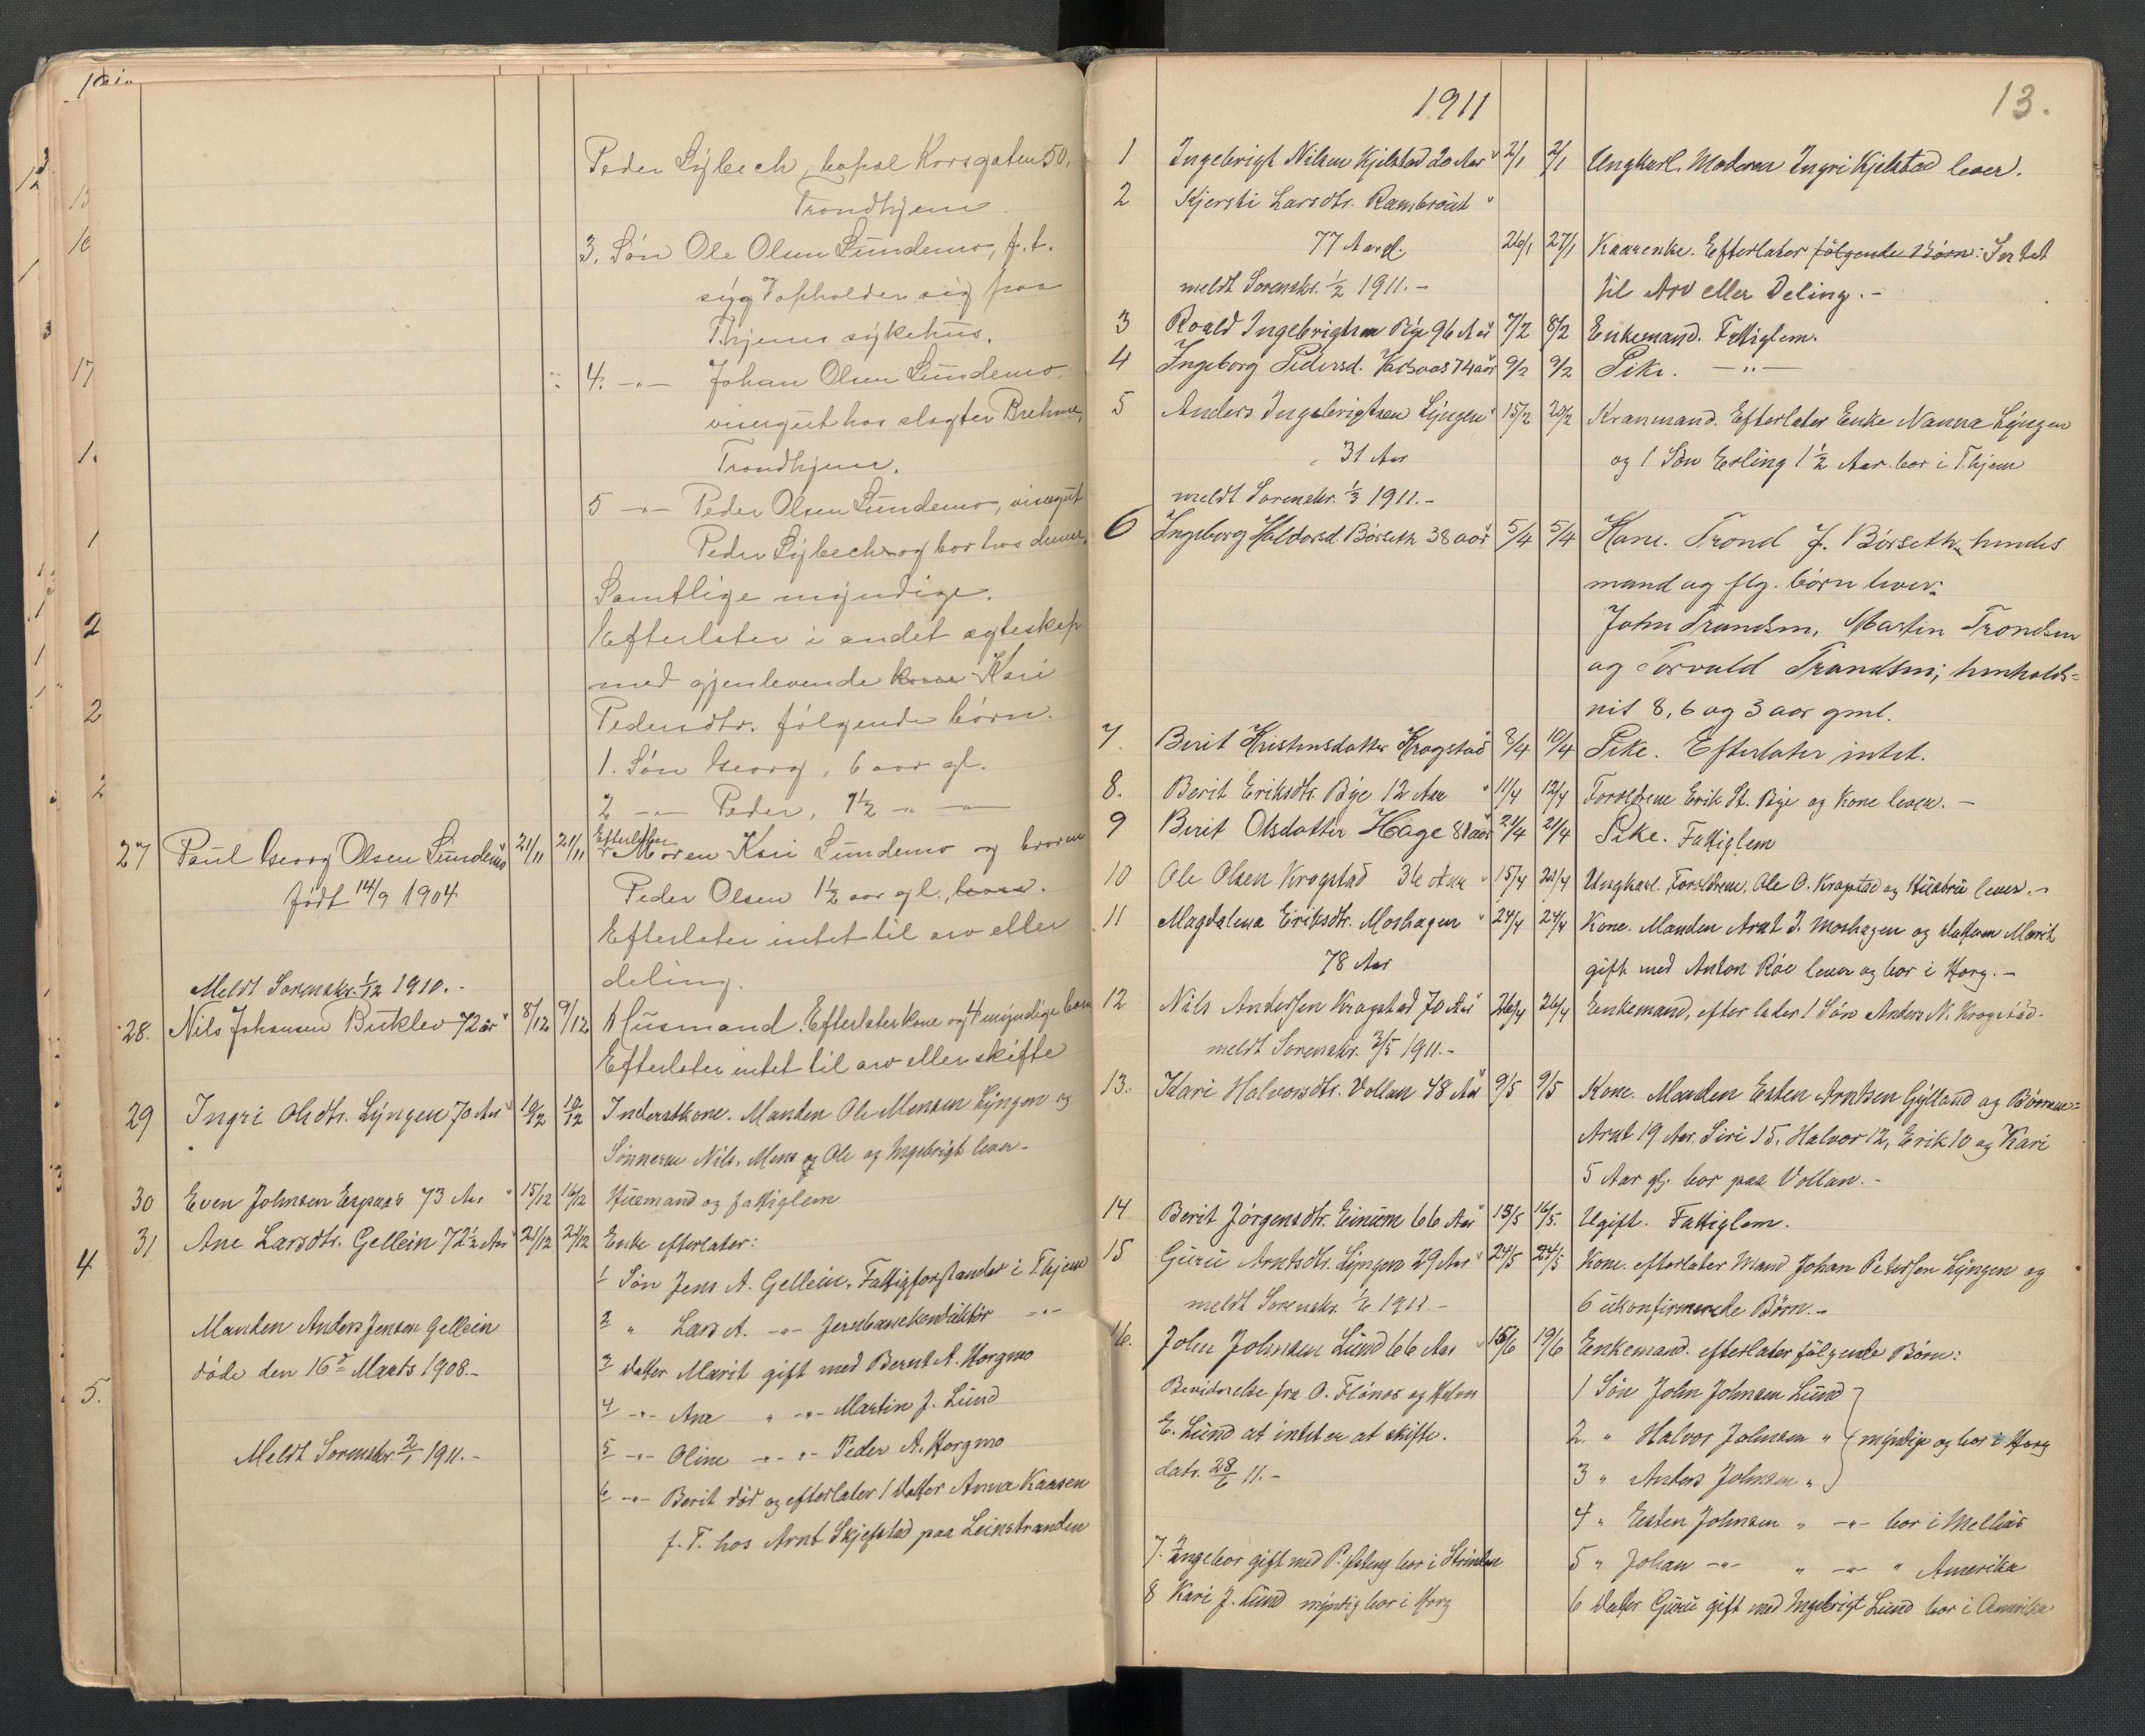 Peder Lybech, bopæl Korsgaten 50,
Trondhjem
3. Søn Ole Olsen Sundemo, f. t.
syg og opholder sig paa
T.hjems sykehus.
4. -"- Johan Olsen Sundemo,
visergut hos slagter Brehme,
Trondhjem.
5 -"- Peder Olsen Sundemo, visergut
Peder Lybech og bor hos denne.
Samtlige myndige.
Efterlater i andet egteskap
med gjenlevende kone Kari
Pedersdtr. følgende børn.
1. Søn Georg, 6 aar gl.
2 -"- Peder, 1½ -"- -"-
27 Paul Georg Olsen Sundemo 21/11 21/11 Efterlater Moren Kari Sundemo og broren
født 14/9 1904 Peder Olsen 1½ aar gl.
Efterlater intet til arv eller
deling.
Meldt Sorenskr. 1/12 1910.-
28. Nils Johansen Buklev 72 år 8/12 9/12 Husmand. Efterlater kone og 4 myndige barn
Efterlater intet til arv eller skifte
29 Ingri Olsdtr. Lyngen 70 Aar 10/12 12/12 Inderstkone. Manden Ole Monsen Lyngen og
Sønnerne Nils, Mons og Ole og Ingebrigt lever.-
30 Even Johnsen Espaas 73 Aar 15/12 16/12 Husmand og fattiglem
31 Ane Larsdtr. Gellein 72½ Aar 21/12 21/12 Enke efterlater:
1 Søn Jens A. Gellein, Fattigforstander i T.hjem
2 " Lars A. -"- Jernbanekonduktør -"-
Manden Anders Jensen Gellein
3 datter Marit gift med Bernt A. Horgmo
døde den 16de Marts 1908.-
4 -"- Ane " -"- Martin J. Lund
5 -"- Oline -"- "- Peder A. Horgmo
Meldt Sorenskr. 2/1 1911.-
6 -"- Berit død og efterlater 1 datter Anna Kaasen
f. T. hos Arnt Skjefstad paa Leinstranden
13.
1911
1 Ingebrigt Nilsen Kjelstad 20 Aar 2/1 2/1 Ungkarl. Moderen Ingri Kjelstad lever.
2 Kjersti Larsdtr. Rambraut
77 Aar 26/1 27/1 Kaarenke. Efterlater følgende Børn: Intet
meldt Sorenskr. 1/2 1911.- til Arv eller Deling.-
3 Roald Ingebrigtsen Bye 96 Aar 7/2 8/2 Enkemand. Fattiglem.
4 Ingeborg Pedersd. 74 aar 9/2 9/2 Pike. -"-
5 Anders Ingebrigtsen Lyngen 15/2 20/2 Kranmand. Efterlater Enke Nanna Lyngen
31 Aar og 1 Søn Erling 1½ Aar. bor i T.hjem
meldt Sorenskr. 1/3 1911.-
6 Ingeborg Haldorsd. Børseth 38 aar 5/4 5/4 Kone. Trond J. Børseth, hendes
mand og flg. børn lever:
John Trondsen, Martin Trondsen
og Torvald Trondsen; henholds=
vis 8, 6 og 3 aar gml.
7. Berit Kristensdatter Krogstad 8/4 10/4 Pike. Efterlater intet.
8. Berit Eriksdtr. Bye 12 Aar 11/4 12/4 Forældrene Erik St. Bye og Kone lever.-
9 Berit Olsdatter Hage 81 aar 21/4 21/4 Pike. Fattiglem
10 Ole Olsen Krogstad 36 Aar 15/4 21/4 Ungkarl. Forældrene, Ole O. Krogstad og Hustru lever.-
11 Magdalena Eriksdtr. Moshagen 24/4 24/4 Kone. Manden Arnt J. Moshagen og datteren Marit
78 Aar gift med Anton Røe lever og bor i Horg.-
12 Nils Andersen Krogstad 70 Aar 26/4 26/4 Enkemand, efterlader 1 Søn Anders N. Krogstad.
meldt Sorenskr. 3/5 1911.-
13. Kari Halvorsdtr. Vollan 48 Aar 9/5 9/5 Kone. Manden Esten Arntsen Gylland og Børnene=
Arnt 19 Aar, Siri 15, Halvor 12, Erik 10 og Kari
5 Aar gl. bor paa Vollan.-
14 Berit Jørgensdtr. Einum 66 Aar 15/5 16/5 Ugift. Fattiglem.
15 Guru Arntsdtr. Lyngen 29 Aar 24/5 24/5 Kone. efterlater Mand Johan Petersen Lyngen og
meldt Sorenskr. 1/6 1911.- 6 ukonfirmerede Børn.-
16. John Johnsen Lund 66 Aar 15/6 19/6 Enkemand. efterlater følgende Børn:
Bevidnelse fra O. Flønes og Halvor 1 Søn John Johnsen Lund
E. Lund at intet er at skifte. 2. " Halvor Johnsen " myndige og bor i Horg
datr. 28/6 11.- 3 " Anders Johnsen "
4 " Esten Johnsen " -"- bor i Melhus
7. Ingebor gift med P. bor i Strinden 5 " Johan -"- " -"- " Amerika
8 Kari J. Lund myndig bor i Horg 6 datter Guru gift med Ingebrigt Lund bor i Amerika